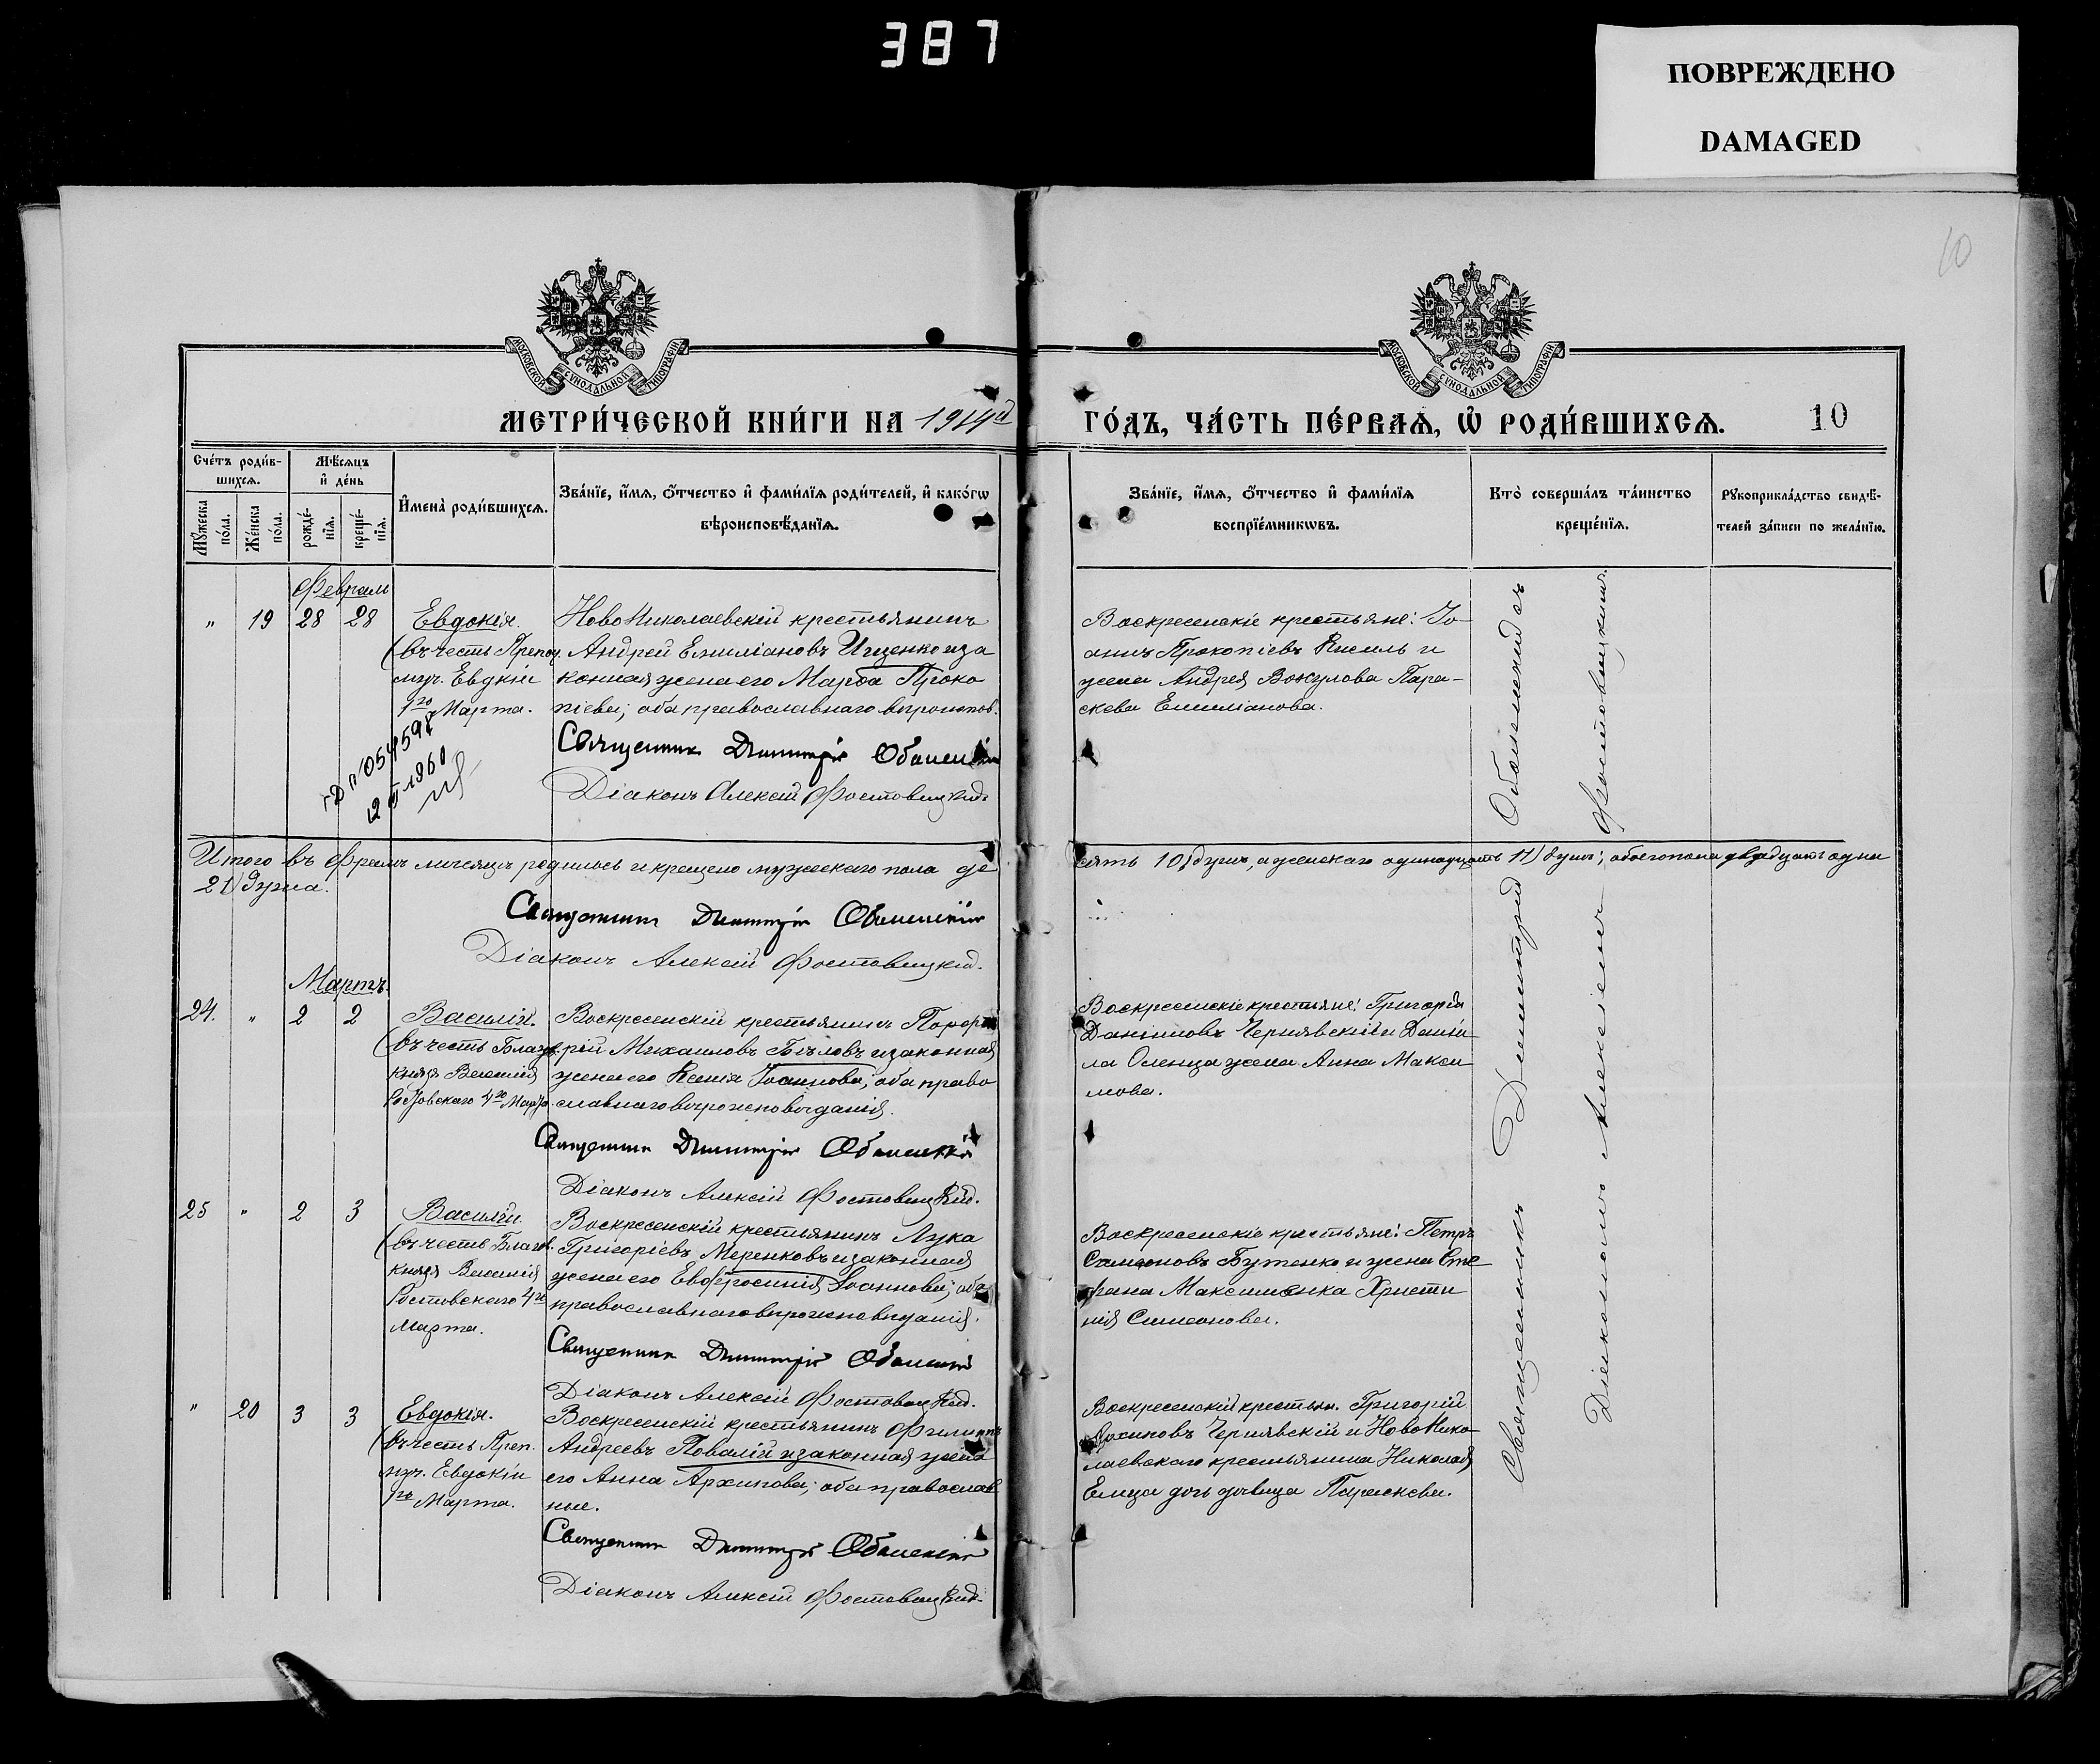 387
ПОВРЕЖДЕНО
DAMAGED
10
МОСКОВСКОЙ СѴНОДАЛЬНОЙ ТИПОГРАФІИ
МОСКОВСКОЙ СѴНОДАЛЬНОЙ ТИПОГРАФІИ
МЕТРИ́ЧЕСКОЙ КНИ́ГИ НА 1914й
ГО́ДЪ, ЧА́СТЬ ПЕ́РВАѦ, Ѽ РОДИ́ВШИХСѦ.
10
Сче́тъ роди́в-
шихсѧ.
Мꙋ́жеска
по́ла.
Же́нска
по́ла.
Мѣ́сѧцъ
и҆ де́нь
рожде́-
нїѧ.
креще́-
нїѧ.
И҆мена̀ роди́вшихсѧ.
Зва́нїе, и҆́мѧ, ѻ҆́тчество и҆ фами́лїѧ роди́телей, и҆ како́гѡ
вѣроисповѣ́данїѧ.
Зва́нїе, и҆́мѧ, ѻ҆́тчество и҆ фами́лїѧ
воспрїе́мникѡвъ.
Кто̀ соверша́лъ та́инство
креще́нїѧ.
Рꙋкоприкла́дство свидѣ́-
телей за́писи по жела́нїю.
Февраль
" 19 28 28 Евдокія.
(въ честь Препод.
муч. Евдкіи
1го Марта.
НовоНиколаевскій крестьянинъ
Андрей Емиліановъ Ищенко и за
конная жена его Марѳа Проко
піева; оба православнаго вѣроиспов.
Священник Димитрій Оболенскій
Діаконъ Алексій Фостовицкій
Воскресенскіе крестьяне: Іо-
аннъ Прокопіевъ Кисиль и
жена Андрея Вожулова Пара-
скева Емиліанова.
054594
1960
Итого въ мѣсяцѣ родилось и крещено мужескаго пола де
сять 10) душъ, а женскаго одинадцать 11) душъ; обоего пола двадцать одна
21) душа.
Священник Димитрій Оболенскій
Діаконъ Алексій Фостовицкій.
Мартъ.
24. " 2 2 Василій.
(въ честь Благов.
князя Василія
Ростовскаго 4го Марта.
Воскресенскій крестьянинъ Порфи
рій Михаиловъ Бѣловъ и законная
жена его Ксенія Іоаннова; оба право
славнаго вѣроисповѣданія.
Священник Димитрій Оболенскій
Діаконъ Алексій Фостовицкій.
Воскресенскіе крестьяне: Григорій
Даніиловъ Чернявскій и Даніи
ла Оленца жена Анна Макси
мова.
25 " 2 3 Василій.
(въ честь Благов.
князя Василія
Ростовскаго 4го
Марта.
Воскресенскій крестьянинъ Лука
Григоріевъ Меренковъ и законная
жена его Евфросинія Іоаннова; оба
православнаго вѣроисповѣданія.
Священник Димитрій Оболенскій
Діаконъ Алексій Фостовицкій.
Воскресенскіе крестьяне: Петръ
Симеоновъ Бутенко и жена Сте
фана Максименка Христи
нія Симеонова.
" 20 3 3 Евдокія.
(въ честь Преп.
муч. Евдокіи
1го Марта.
Воскресенскій крестьянинъ Филиппъ
Андреевъ Повалій и законная жена
его Анна Архипова; оба православ
ные.
Священник Димитрій Оболенскій
Діаконъ Алексій Фостовицкій
Воскресенскій крестьян. Григорій
Архиповъ Чернявскій и НовоНико
лаевскаго крестьянина Николая
Елица дочь дѣвица Параскева.
Священникъ Димитрій Оболенскій съ
Діакономъ Алексіемъ Фостовицкимъ.